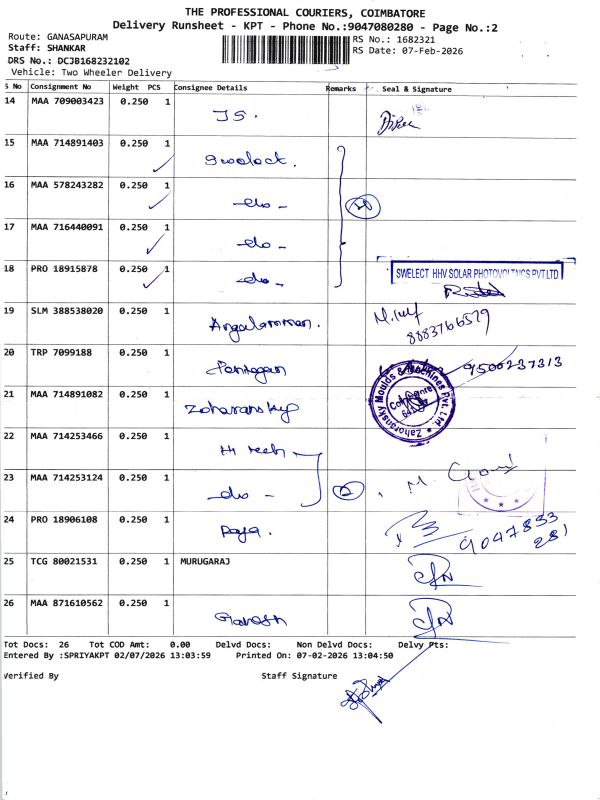 THE PROFESSIONAL COURIERS, COIMBATORE
Delivery Runsheet - KPT - Phone No.:9047080280 - Page No.:2
Route: GANASAPURAM
RS No.: 1682321
Staff: SHANKAR
RS Date: 07-Feb-2026
DRS No.: DCJB168232102
Vehicle: Two Wheeler Delivery
S No Consignment No Weight PCS Consignee Details Remarks Seal & Signature
14 MAA 709003423 0.250 1 JS.
15 MAA 714891403 0.250 1
16 MAA 578243282 0.250 1 -do-
17 MAA 716440091 0.250 1 -do-
18 PRO 18915878 0.250 1 -do- SWELECT HHV SOLAR PHOTOVOLTAICS PVT.LTD
19 SLM 388538020 0.250 1 Angalamman. 8883766529
20 TRP 7099188 0.250 1 9500237313
21 MAA 714891082 0.250 1 Zahoransky Zahoransky Moulds & Machines Pvt. Ltd.
22 MAA 714253466 0.250 1 Hi tech
23 MAA 714253124 0.250 1 -do- 2 M.
24 PRO 18906108 0.250 1 Raja. 9047833281
25 TCG 80021531 0.250 1 MURUGARAJ
26 MAA 871610562 0.250 1 Ganesh
Tot Docs: 26 Tot COD Amt: 0.00 Delvd Docs: Non Delvd Docs: Delvy Pts:
Entered By :SPRIYAKPT 02/07/2026 13:03:59 Printed On: 07-02-2026 13:04:50
Verified By Staff Signature